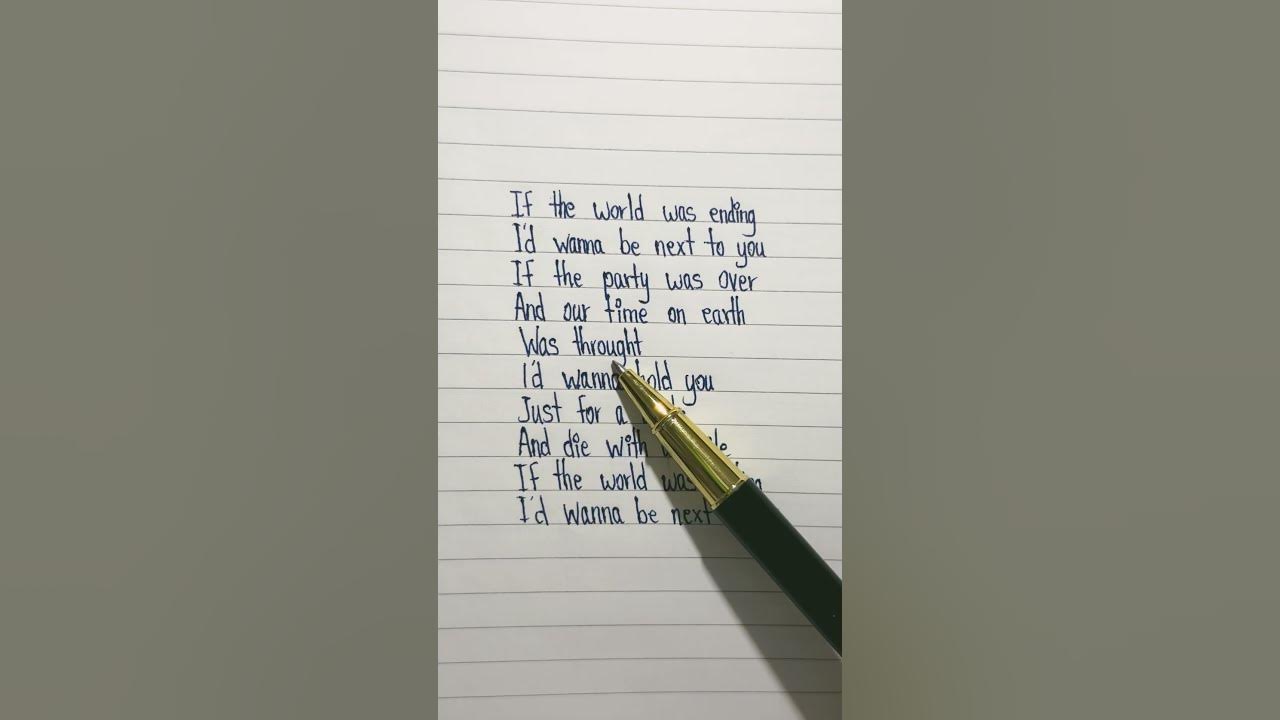 If the world was ending
I'd wanna be next to you
If the party was over
And our time on earth
Was throught
I'd wanna hold you
Just for a
And die with
If the world was
I'd wanna be next